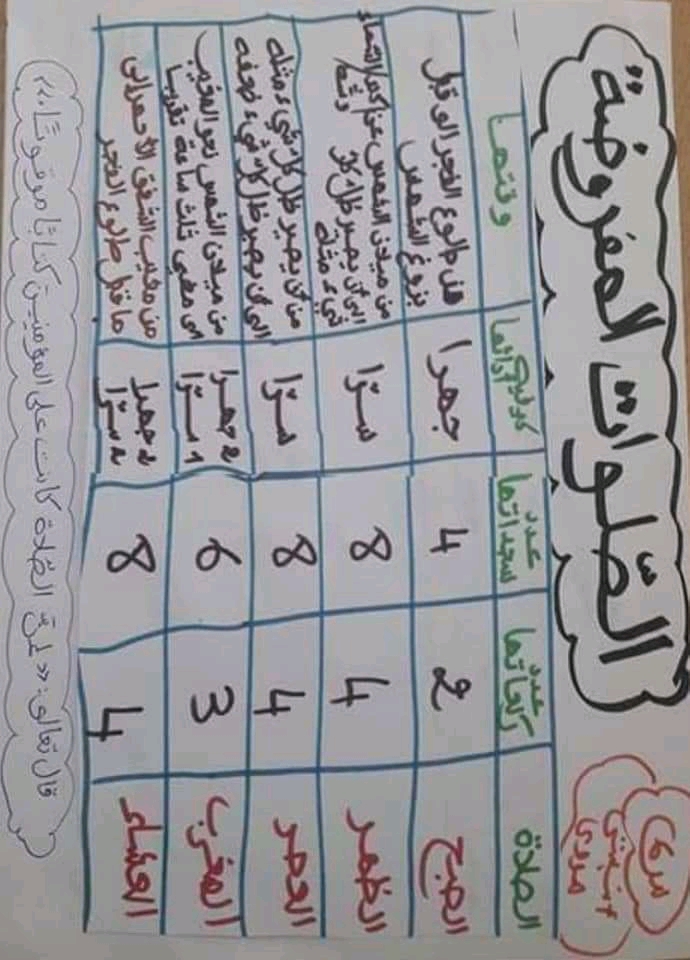 الصّلوات المفروضة
الصلاة
عدد ركعاتها
عدد سجداتها
كيفية أدائها
وقتها
الصبح
2
4
جهرا
من طلوع الفجر إلى قبل
بزوغ الشمس
الظهر
4
8
سرّا
من ميلان الشمس عن السماء
إلى أن يصير ظل كل
شيء مثله
العصر
4
8
سرّا
من أن يصير ظل كل شيء مثله
إلى أن يصير ظل كل شيء ضعفه
المغرب
3
6
2 جهرا
1 سرّا
من ميلان الشمس نحو المغيب
إلى مضي ثلث ساعة تقريبا
العشاء
4
8
2 جهرا
2 سرّا
من مغيب الشفق الأحمر إلى
ما قبل طلوع الفجر
قال تعالى: « إنّ الصّلاة كانت على المؤمنين كتابا موقوتا.»